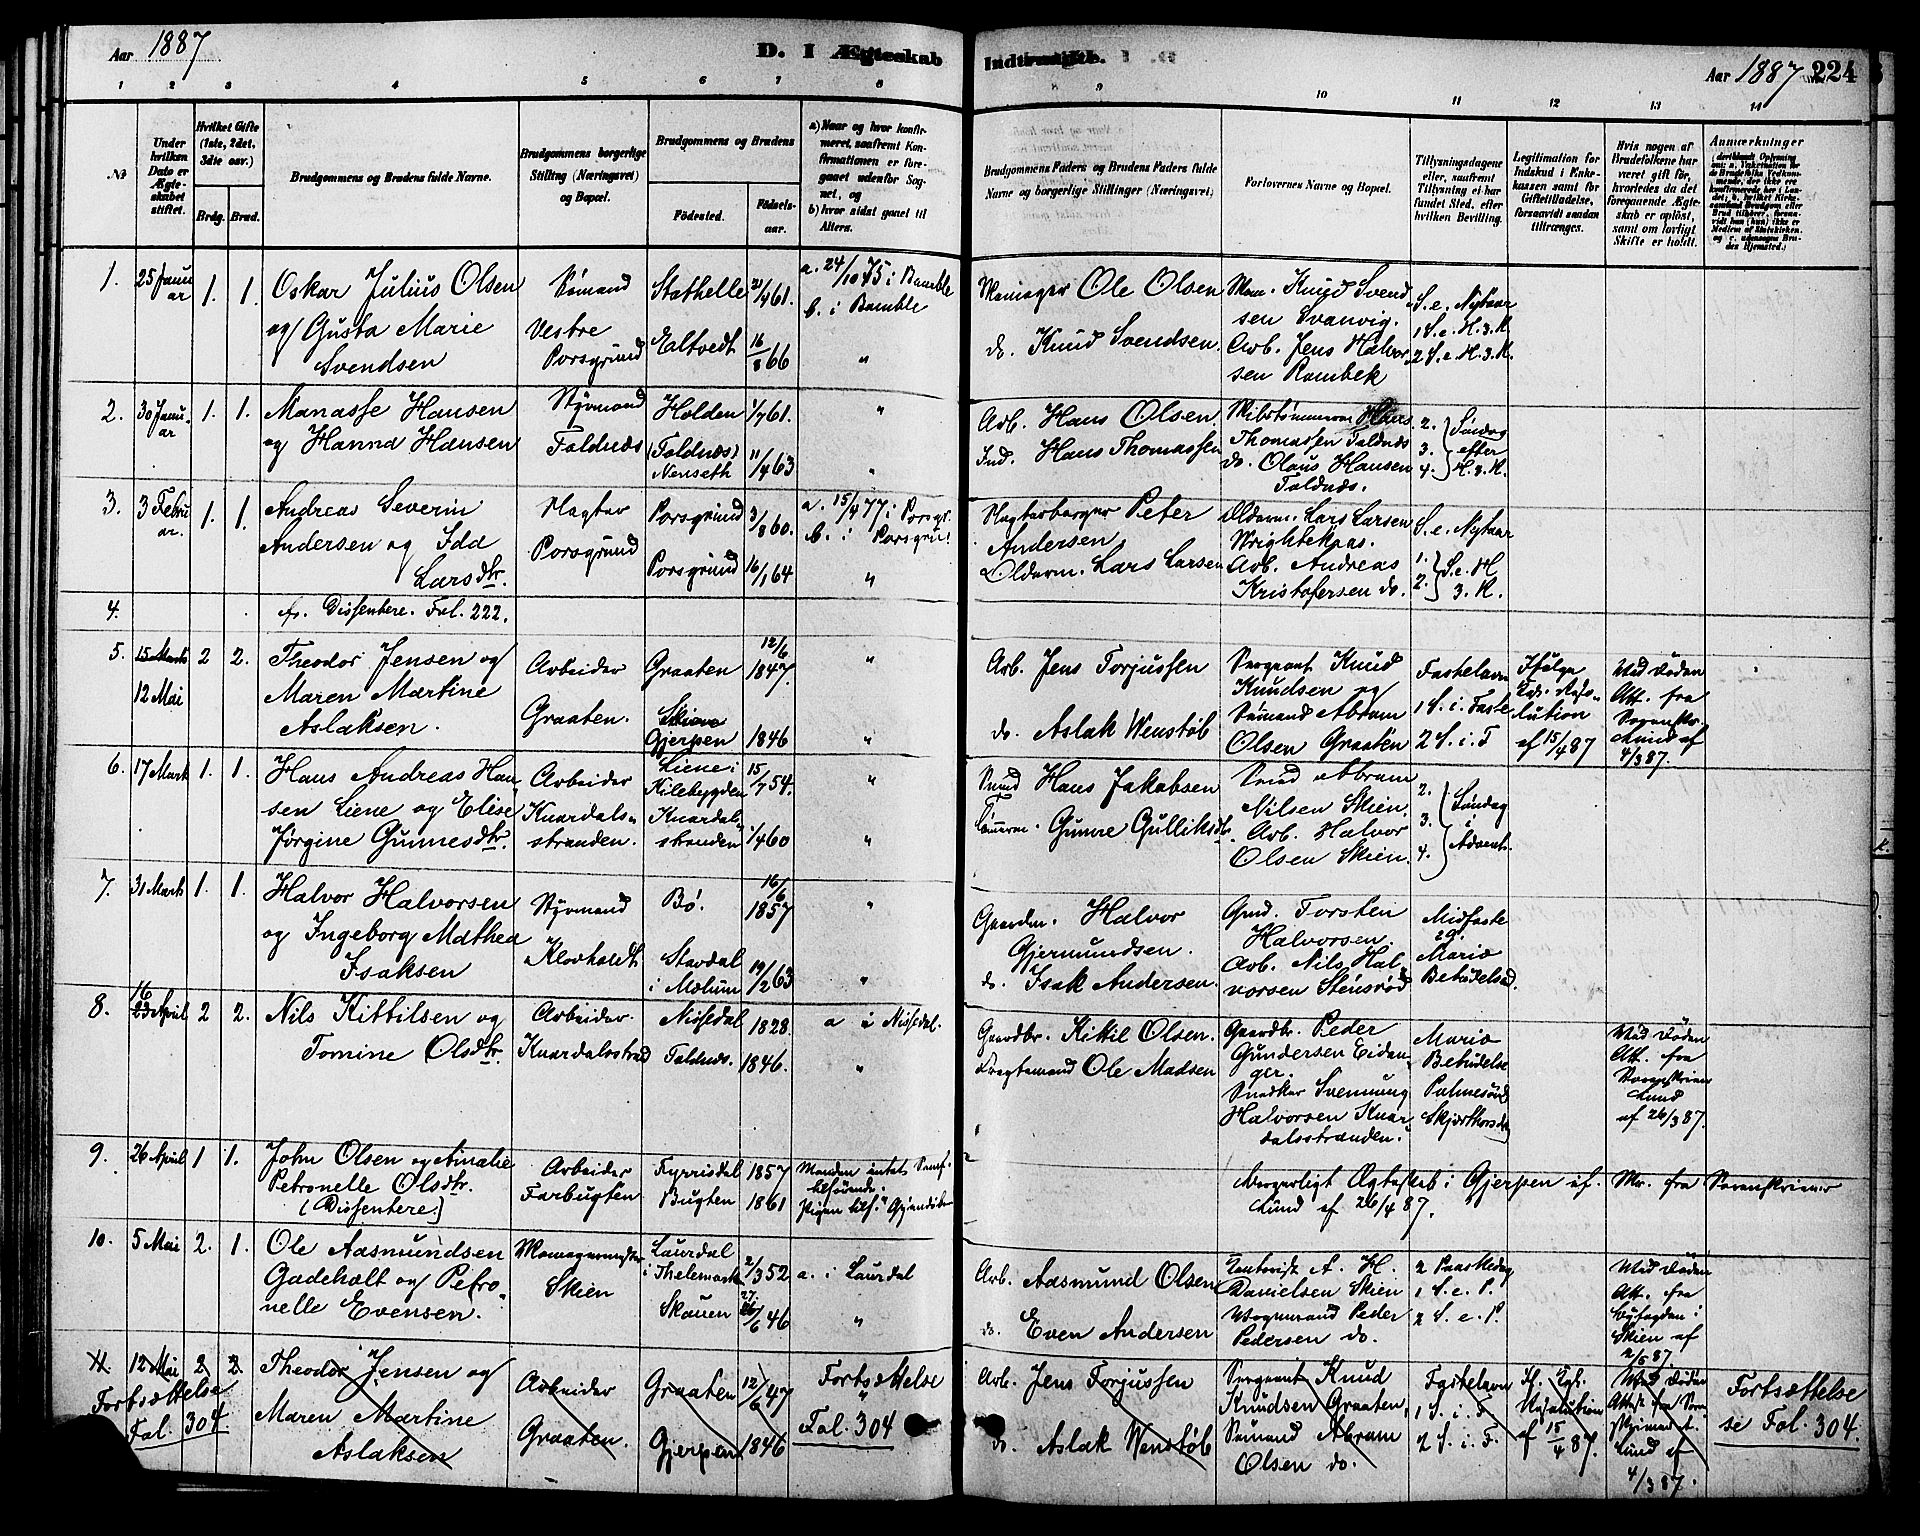 Aar 1887
D. I Ægteskab
Indtraadte.
Aar 1887
224
1 2 3 4 5 6 7 8
9 10 11 12 13 14
No
Under hvilken Dato er Ægteskabet stiftet.
Hvilket Gifte (1ste, 2det, 3die osv.)
Brdg. Brud.
Brudgommens og Brudens fulde Navne.
Brudgommens borgerlige Stilling (Næringsvei) og Bopæl.
Brudgommens og Brudens
Födested.
Födselsaar.
a) Naar og hvor konfirmeret, saafremt Konfirmationen er foregaaet udenfor Sognet, og
b) hvor sidst gaaet til Alters.
Brudgommens Faders og Brudens Faders fulde Navne og borgerlige Stillinger (Næringsvei).
Forlovernes Navne og Bopæl.
Tillysningsdagene eller, saafremt Tillysning ei har fundet Sted, efter hvilken Bevilling.
Legitimation for Indskud i Enkekassen samt for Giftetilladelse, forsaavidt saadan tiltrænges.
Hvis nogen af Brudefolkene har været gift før, hvorledes da det foregaaende Ægteskab er oplöst, samt om lovligt Skifte er holdt.
Anmærkninger
1. 25 Januar 1. 1. Oskar Julius Olsen
og Gusta Marie
Svendsen
Sømand
Vestre
Porsgrund
Stathelle 21/4 61.
Eltvedt 16/8 66
a. 24/10 75 i Bamble
b. i Bamble
"
Ole Olsen
do. Knud Svendsen.
Knud Svend
sen Svanvig.
Arb. Jens Halvor
sen Rambek
S. e. Nytaar
1 S. e. H. 3. K.
2 S. e. H. 3. K.
2. 30 Januar 1. 1. Manasse Hansen
og Hanna Hansen
Styrmand
Foldnæs
Holden 1/7 61.
(Foldnæs)
Nenseth 11/4 63
"
"
Arb. Hans Olsen.
Ind. Hans Thomassen
Skibstømmerm Hans
Thomassen Foldnæs
do. Olaus Hansen
Foldnæs.
2. 3. 4. Søndag
efter
H. 3. K.
3. 3 Februar. 1. 1. Andreas Severin
Andersen og Ida
Larsdtr.
Slagter
Porsgrund
Porsgrund 3/8 60.
Porsgrund 16/1 64
a. 15/4 77 i Porsgr.
b. i Porsgru!
"
Slagterborger Peter
Andersen
Olderm. Lars Larsen
Olderm. Lars Larsen
Wrightekaas.
Arb. Andreas
Kristofersen do.
S. e. Nytaar
1. 2. S. e. H
3. K.
4. cfr. Dissentere. Fol. 222.
5. 15 Marts
12 Mai
2 2. Theodor Jensen og
Maren Martine
Aslaksen.
Arbeider
Graaten.
Graaten 12/6 1847.
Skien
Gjerpen 1846
"
"
Arb. Jens Torjussen
do. Aslak Wenstøb
Sergeant Knud
Knudsen og
Sømand Abram
Olsen Graaten
Fastelavn
1 S. i. Faste
2 S. i. F
Ifølge
Kgl. Reso-
lution
af 15/4 87
Ved Døden
Att. fra
Sorenskr.
Lund af
4/3 87.
6. 17 Mart 1. 1. Hans Andreas Han
sen Liene og Elise
Jørgine Gunnesdtr.
Arbeider
Knardals-
stranden.
Liene i
Kilebygden 15/7 54.
Knardals
stranden 1/4 60
"
"
Hans Jakobsen
Gunne Gulliksdtr.
Abram
Nilsen Skien
Arb. Halvor
Olsen Skien.
2. 3. 4. Søndag
i
Advent.
7. 31 Marts 1. 1. Halvor Halvorsen
og Ingeborg Mathea
Isaksen
Styrmand
Klovholdt
Bø. 16/6 1857
Stavdal
i Mælum 19/2 63
"
"
Gaardm. Halvor
Gjermundsen.
do. Isak Andersen.
Gmd. Torsten
Halvorsen.
Arb. Nils Hal
vorsen Stensrød
Midfaste
Mariæ
Bebudelsesd.
8. 16
23 April 2 2. Nils Kittilsen og
Tomine Olsdtr.
Arbeider.
Knardalsstrand
Nissedal 1828.
Foldnæs. 1846.
a i Nissedal.
"
Gaardbr. Kittil Olsen.
Fragtemand Ole Madsen
Gaardbr. Peder
Gundersen Eidan
ger.
Snedker Svennung
Halvorsen Knar
dalsstranden.
Mariæ
Bebudelse
Palmesønd
Skjærthorsdag
Ved Døden
Att. fra
Sorenskriver
Lund
af 26/3 87.
9. 26 April 1 1. John Olsen og Amalie
Petronelle Olsdtr.
(Dissentere)
Arbeider
Farbugten
Fyrrisdal 1857
Bugten 1861
Manden intet Samf.
tilhørende.
Borgerligt Ægteskab i Gjerpen af. fra Sorenskriver
Lund af 26/4 87.
10. 5 Mai 2. 1. Ole Aasmundsen
Gadeholt og Petro
nelle Evensen.
Skien
Laurdal
i Thelemarken 2/3 52
Skauen 27/6 46
a. i Laurdal
"
Arb. Aasmund Olsen
do. Even Andersen
A. H.
Danielsen Skien
Vognmand Peder
Pedersen do.
2 Paaskedag
1 S. e. P.
2 S. e. P.
Ved Døden
Att. fra
Byfogden i
Skien af
2/5 87.
11 12 Mai 2 2. Theodor Jensen og
Maren Martine
Aslaksen
Fortsættelse
Fol. 304
Arbeider
Graaten.
Graaten 12/6 47
Gjerpen 1846
Fortsættelse
"
Fol. 304
Arb. Jens Torjussen
do. Aslak Wenstøb
Sergeant Knud
Knudsen Graaten,
Sømand Abram
Olsen do.
Fastelavn
1 S. i. F
2 S. i. F.
If. Kgl.
Resolution
af 15/4 87.
Ved Døden
Attest fra Soren
skriver
Lund af
4/3 87.
Fortsættelse
se Fol. 304.